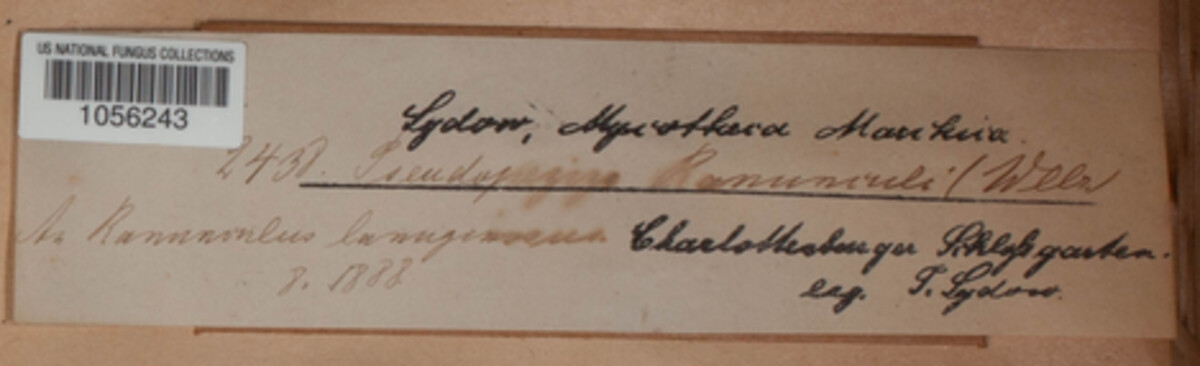 US NATIONAL FUNGUS COLLECTIONS
1056243
Sydow, Mycotheca Marchica.
Pseudopeziza Ranunculi (Wllr
An Ranunculus lanuginosus Charlottenburger Schloßgarten.
8. 1888 leg. P. Sydow.